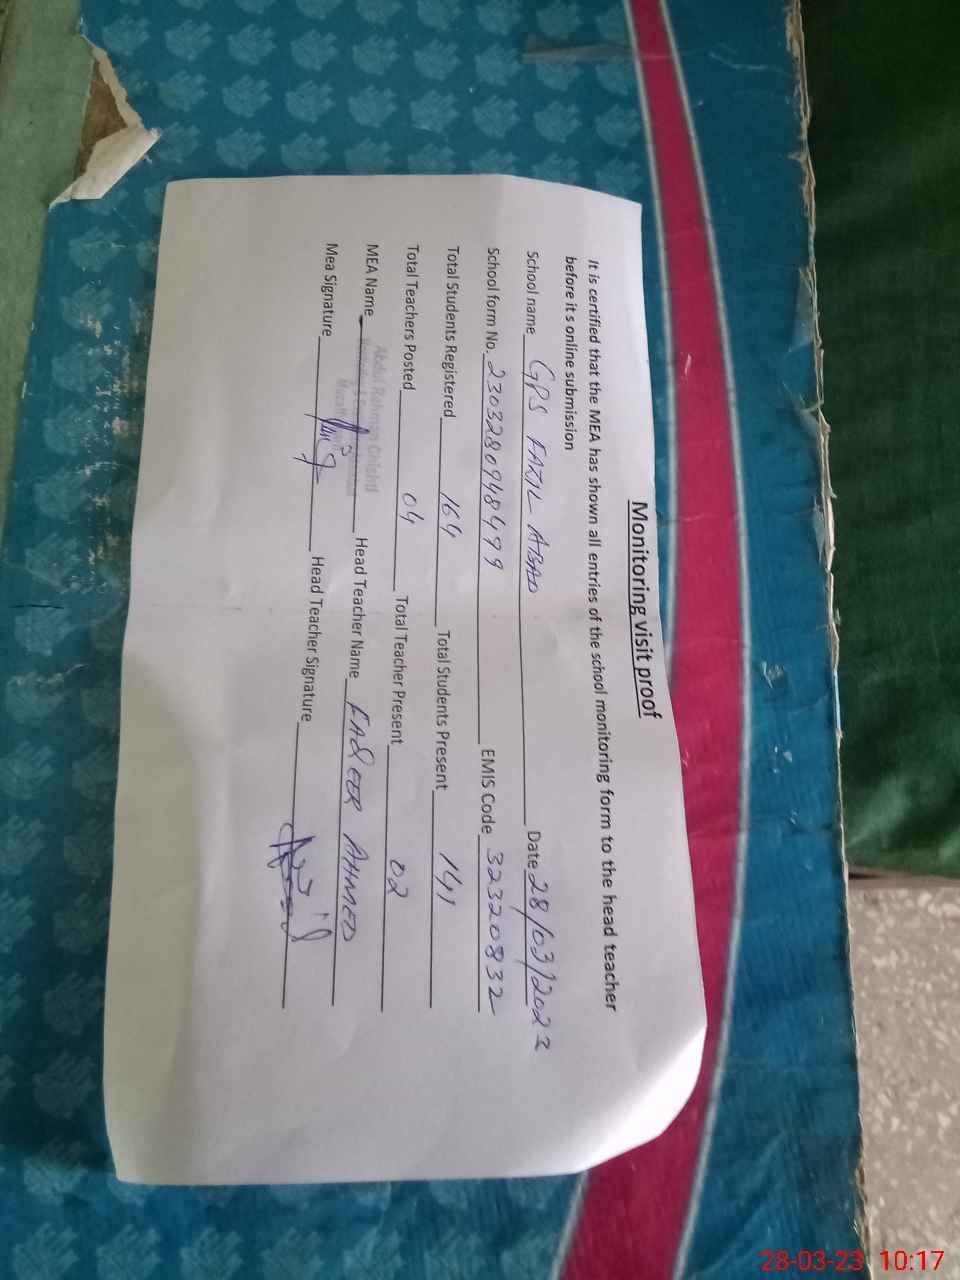 Monitoring visit proof
It is certified that the MEA has shown all entries of the school monitoring form to the head teacher
before it s online submission
School name GPS FAZIL ABAD Date 28/03/2023
School form No. 230328094849 9 EMIS Code 32320832
Total Students Registered 164 Total Students Present 141
Total Teachers Posted 04 Total Teacher Present 02
MEA Name Abdul Rahman Chishti Head Teacher Name FAQEER AHMED
Mea Signature Head Teacher Signature
28-03-23 10:17